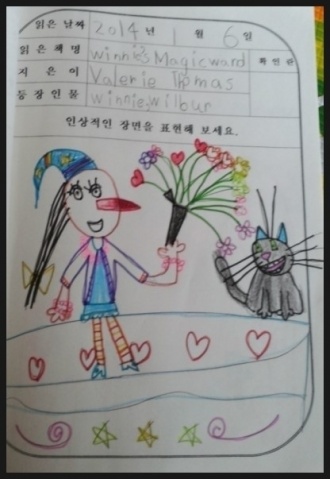 읽은 날짜 2014 년 1 월 6 일
읽은 책 명 Winnie's Magicward 확인란
지은이 Valerie Thomas
등장인물 winnie, wilbur
인상적인 장면을 표현해 보세요.